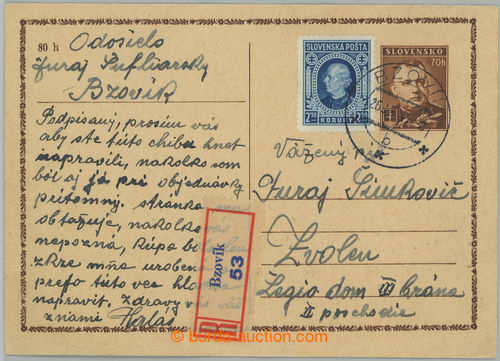 80 h
Odosiela
Juraj Šufliarsky
Bzovík
Podpisaný, prosím vás
aby ste túto chibu hneť
napravili, nakolko som
bol aj ja pri objednávky
pritomny. stránka
obťažuje, nakolko
nepozna, kúpa
zkze mňa urobena
preto túto vec
napraviť. Zdravy vás váš
znami Halás
SLOVENSKÁ POŠTA
2.50 KORUNY 2.50
SLOVENSKO
70h
BZOVÍK
Vážený pán
Juraj Simkovič
Zvolen
Legio dom III brána
II poschodie
R
Bzovík
53
© burda-auction.com